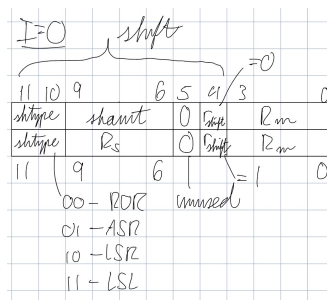 I=0 shift
=0
11 10 9 6 5 4 3 0
shtype shamt 0 rshift Rm
shtype Rs 0 rshift Rm
11 9 6 =1 0
00 - ROR unused
01 - ASR
10 - LSR
11 - LSL